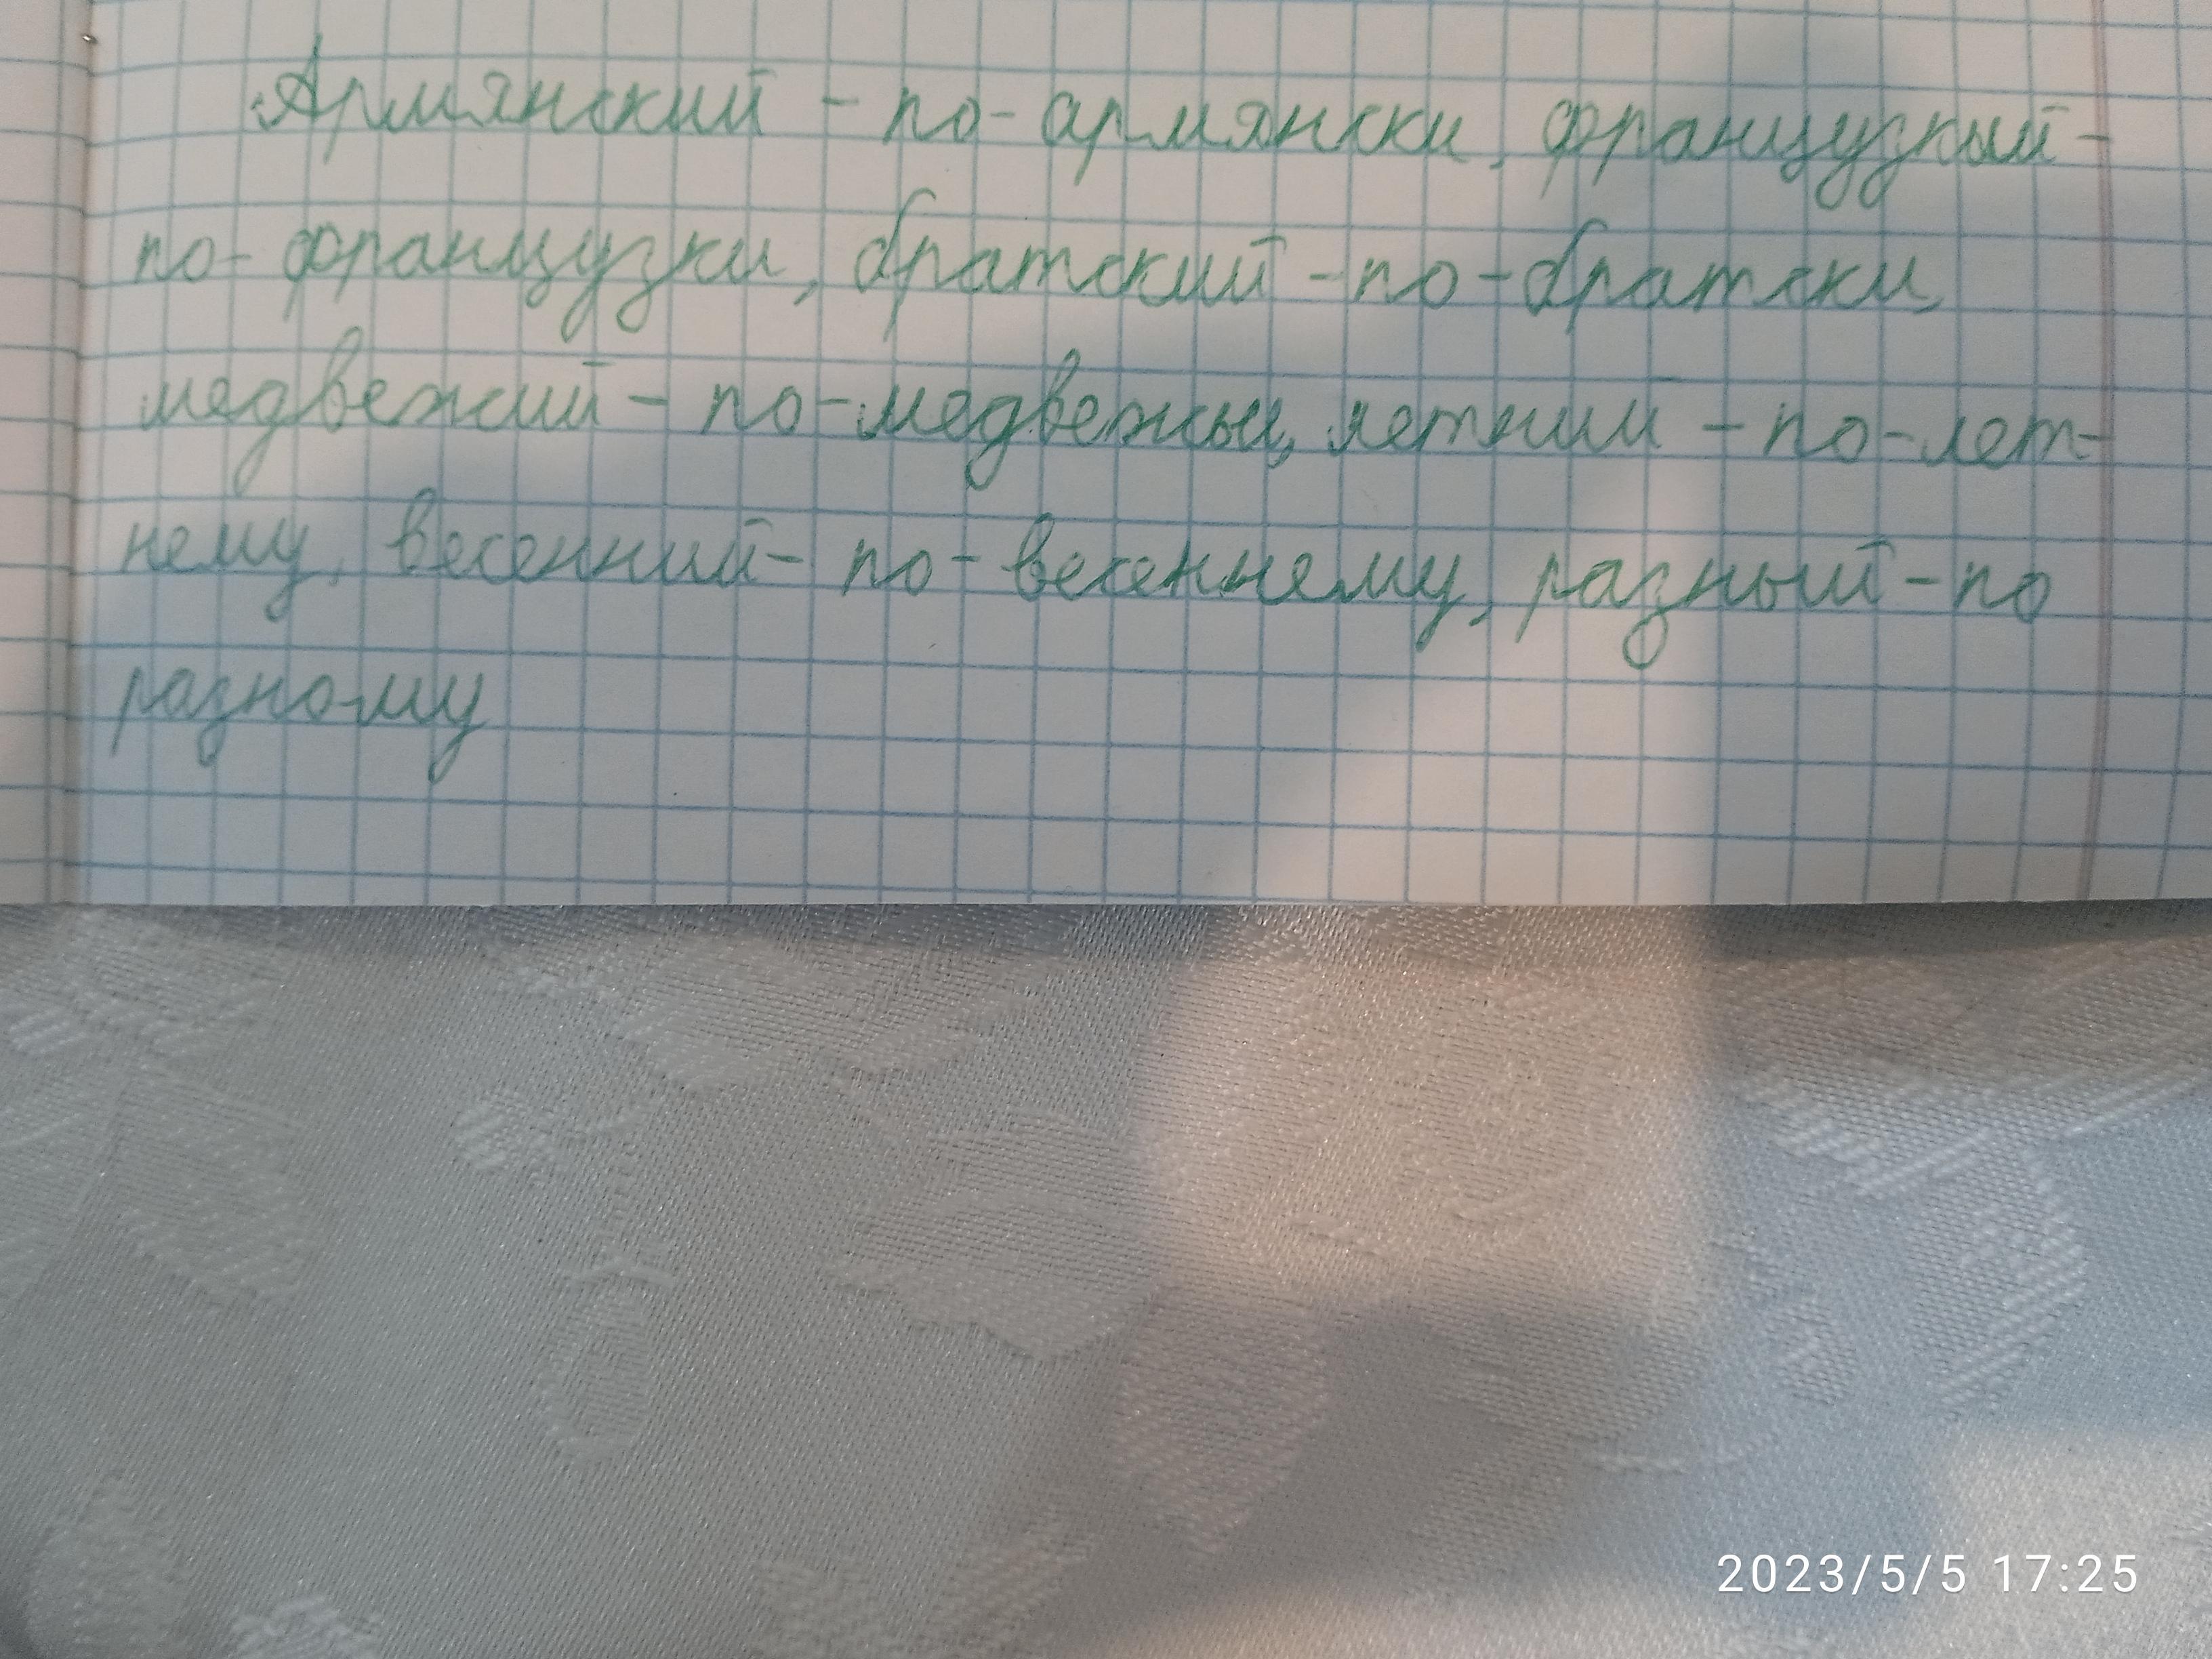 Армянский - по-армянски, французкый -
по-французки, братский - по-братски,
медвежий - по-медвежьи, летний - по-лет-
нему, весенний - по-весеннему, разный - по
разному
2023/5/5 17:25